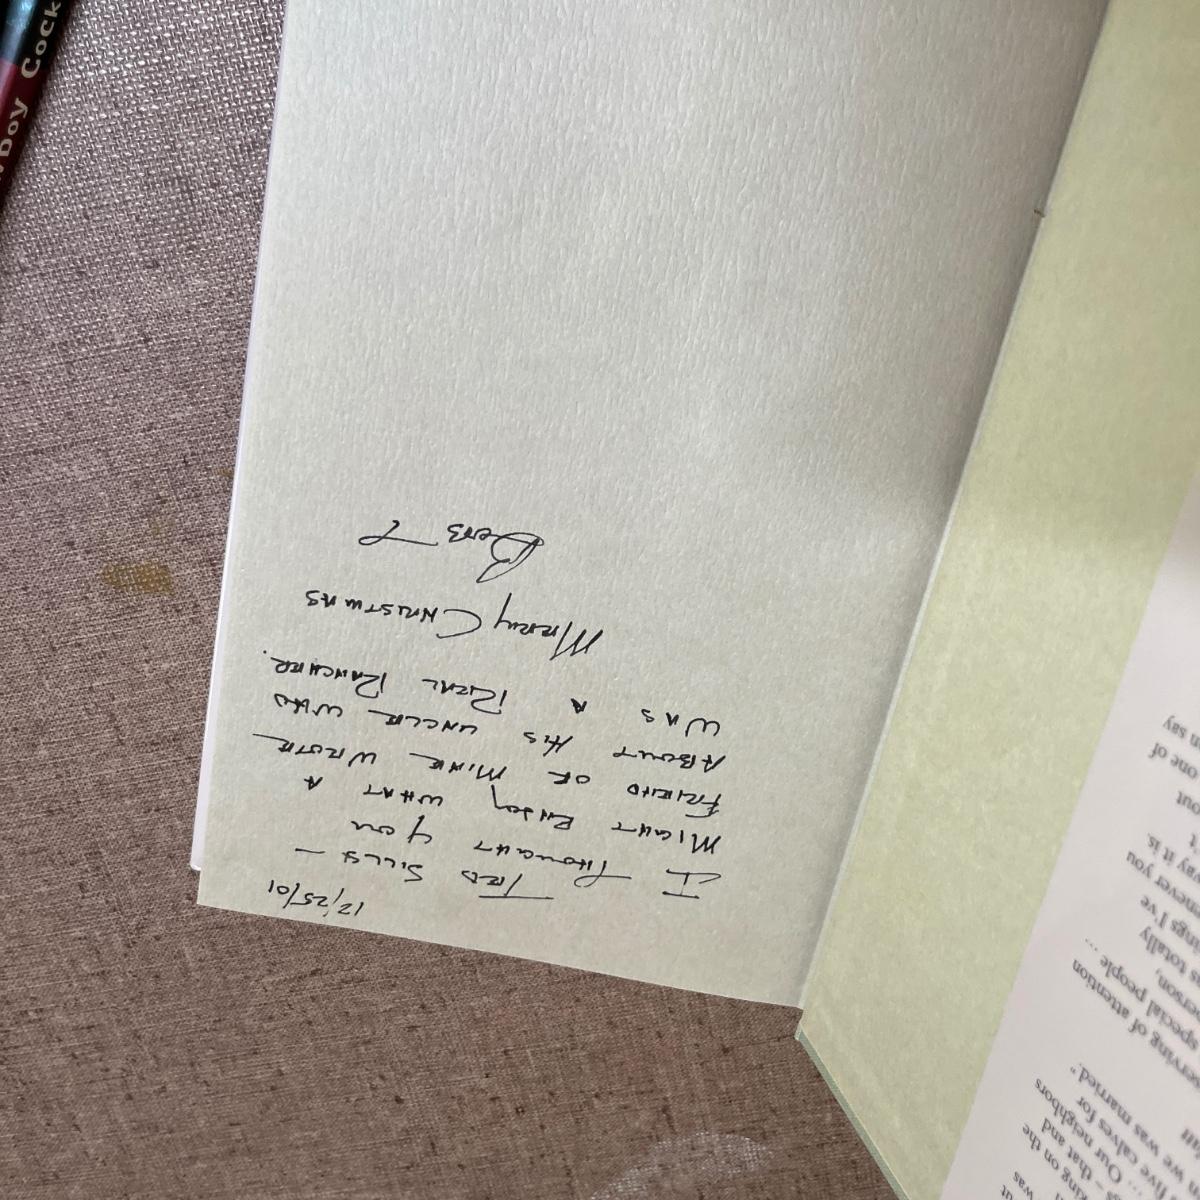 12/25/01
TED SILLS —
I THOUGHT you
MIGHT ENJOY WHAT A
FRIEND OF MINE WROTE
ABOUT HIS UNCLE WHO
WAS A REAL RANCHER.
MERRY CHRISTMAS
say
one of
out
way it is
enever you
ings I've
as totally
person,
special people ...
serving of attention
we was married."
five calves for
... Our neighbors
– that and
ing on the
was
Boy Cock